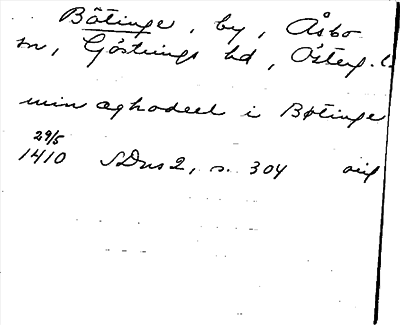 Bötinge, by, Åsbo
sn, Göstrings hd, Österg. l.
min aghodeel i Bøtinge
29/5
1410 SDns 2, s. 304 orig